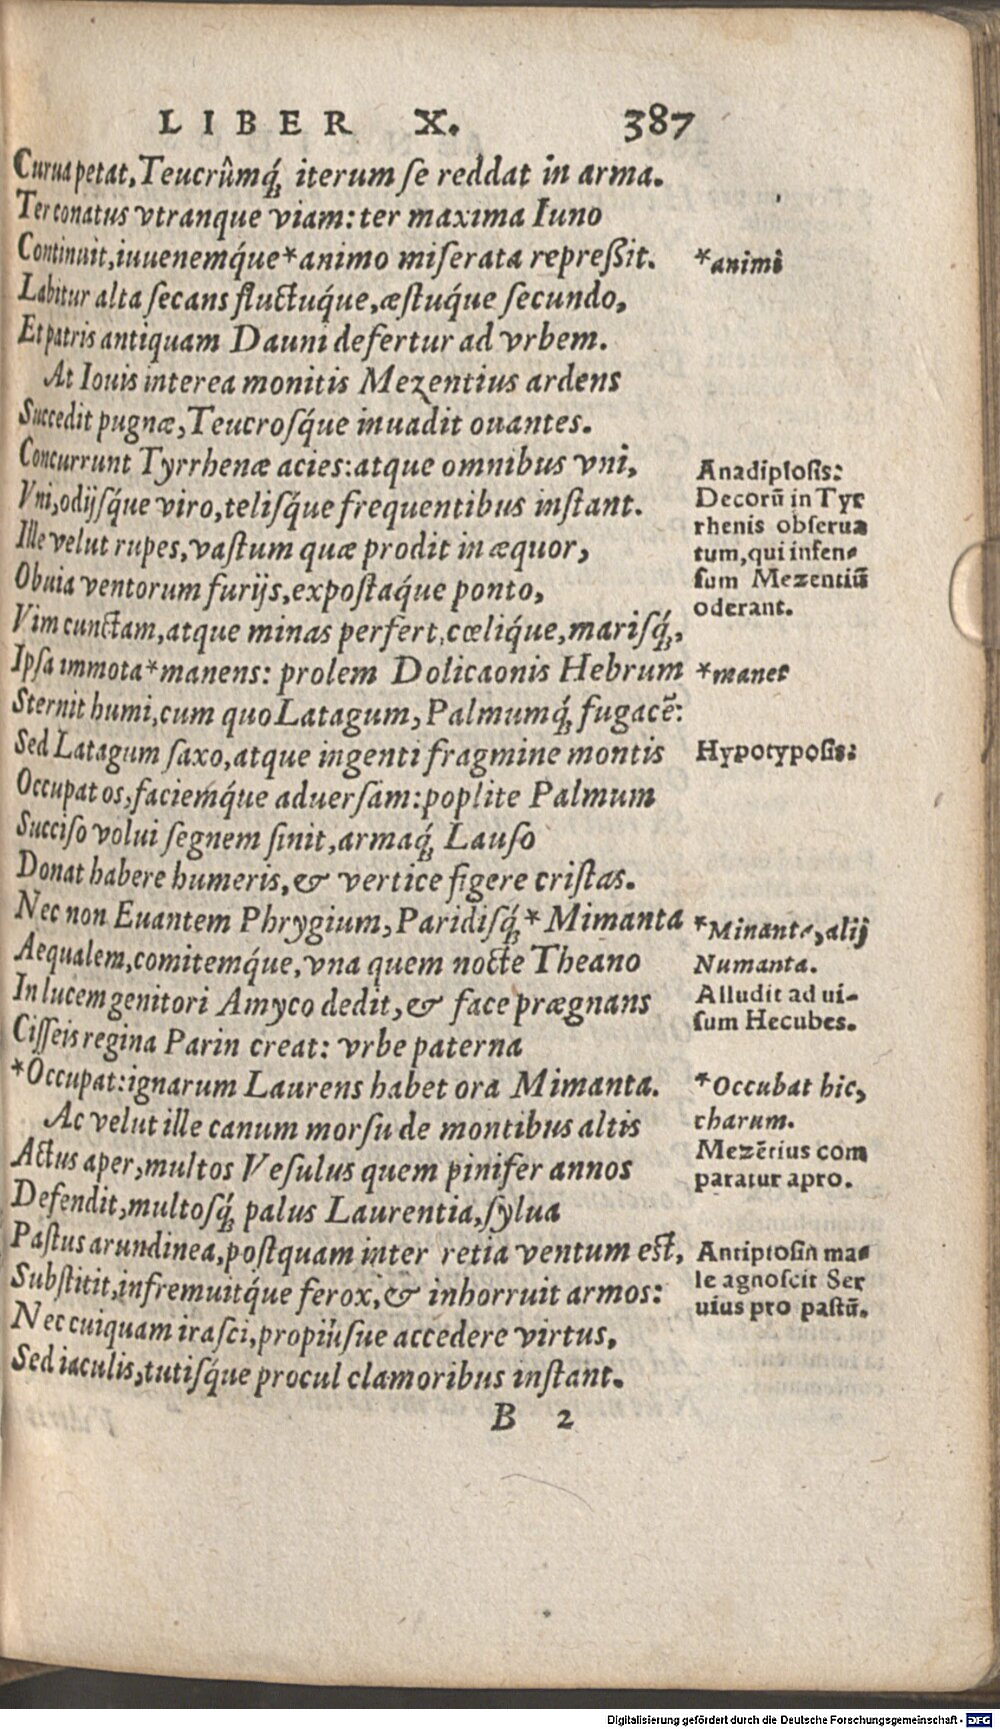 LIBER X. 387
Curua petat, Teucrûmq́; iterum se reddat in arma.
Ter conatus vtranque viam: ter maxima Iuno
Continuit, iuuenemq́ue *animo miserata repreßit.
*animi
Labitur alta secans fluctuq́ue, æstuq́ue secundo,
Et patris antiquam Dauni defertur ad vrbem.
At Iouis interea monitis Mezentius ardens
Succedit pugnæ, Teucrosq́ue inuadit ouantes.
Concurrunt Tyrrhenæ acies: atque omnibus vni,
Vni, odijsq́ue viro, telisq́ue frequentibus instant.
Ille velut rupes, vastum quæ prodit in æquor,
Obuia ventorum furijs, expostaq́ue ponto,
Anadiplosis:
Decorũ in Tyr
rhenis obserua
tum, qui infen-
sum Mezentiũ
oderant.
Vim cunctam, atque minas perfert, cœliq́ue, marisq́;,
Ipsa immota *manens: prolem Dolicaonis Hebrum
*manet
Sternit humi, cum quo Latagum, Palmumq́; fugacẽ:
Sed Latagum saxo, atque ingenti fragmine montis
Hypotyposis:
Occupat os, faciemq́ue aduersam: poplite Palmum
Succiso volui segnem sinit, armaq́; Lauso
Donat habere humeris, & vertice figere cristas.
Nec non Euantem Phrygium, Paridisq́; *Mimanta
Aequalem, comitemq́ue, vna quem nocte Theano
In lucem genitori Amyco dedit, & face prægnans
Cisseis regina Parin creat: vrbe paterna
*Minanta, alij
Numanta.
Alludit ad ui-
sum Hecubes.
*Occupat: ignarum Laurens habet ora Mimanta.
Ac velut ille canum morsu de montibus altis
Actus aper, multos Vesulus quem pinifer annos
*Occubat hic,
charum.
Mezẽtius com
paratur apro.
Defendit, multosq́; palus Laurentia, sylua
Pastus arundinea, postquam inter retia ventum est,
Substitit, infremuitq́ue ferox, & inhorruit armos:
Antiptosin ma-
le agnoscit Ser
uius pro pastũ.
Nec cuiquam irasci, propiúsue accedere virtus,
Sed iaculis, tutisq́ue procul clamoribus instant.
B 2
Digitalisierung gefördert durch die Deutsche Forschungsgemeinschaft - DFG